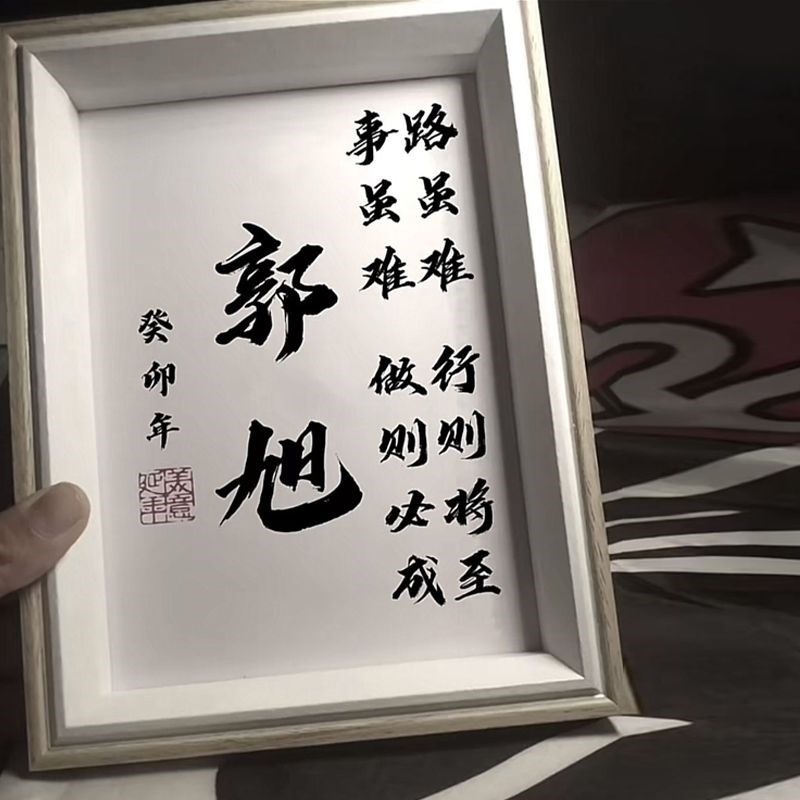 路虽难 行则将至
事虽难 做则必成
郭旭
癸卯年
美意延年